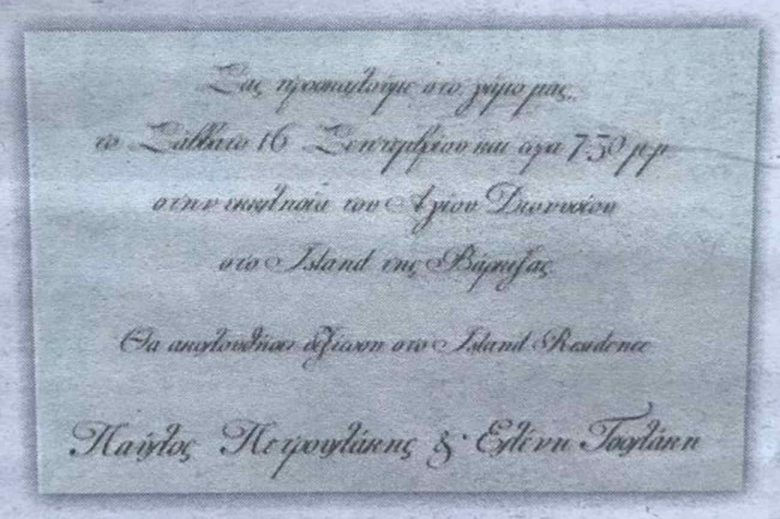 Σας προσκαλούμε στο γάμο μας,
το Σάββατο 16 Σεπτεμβρίου και ώρα 7.30 μ.μ
στην εκκλησία του Αγίου Διονυσίου
στο Island της Βάρκιζας
Θα ακολουθήσει δεξίωση στο Island Residence
Παύλος Πετρουλάκης & Ελένη Τσολάκη